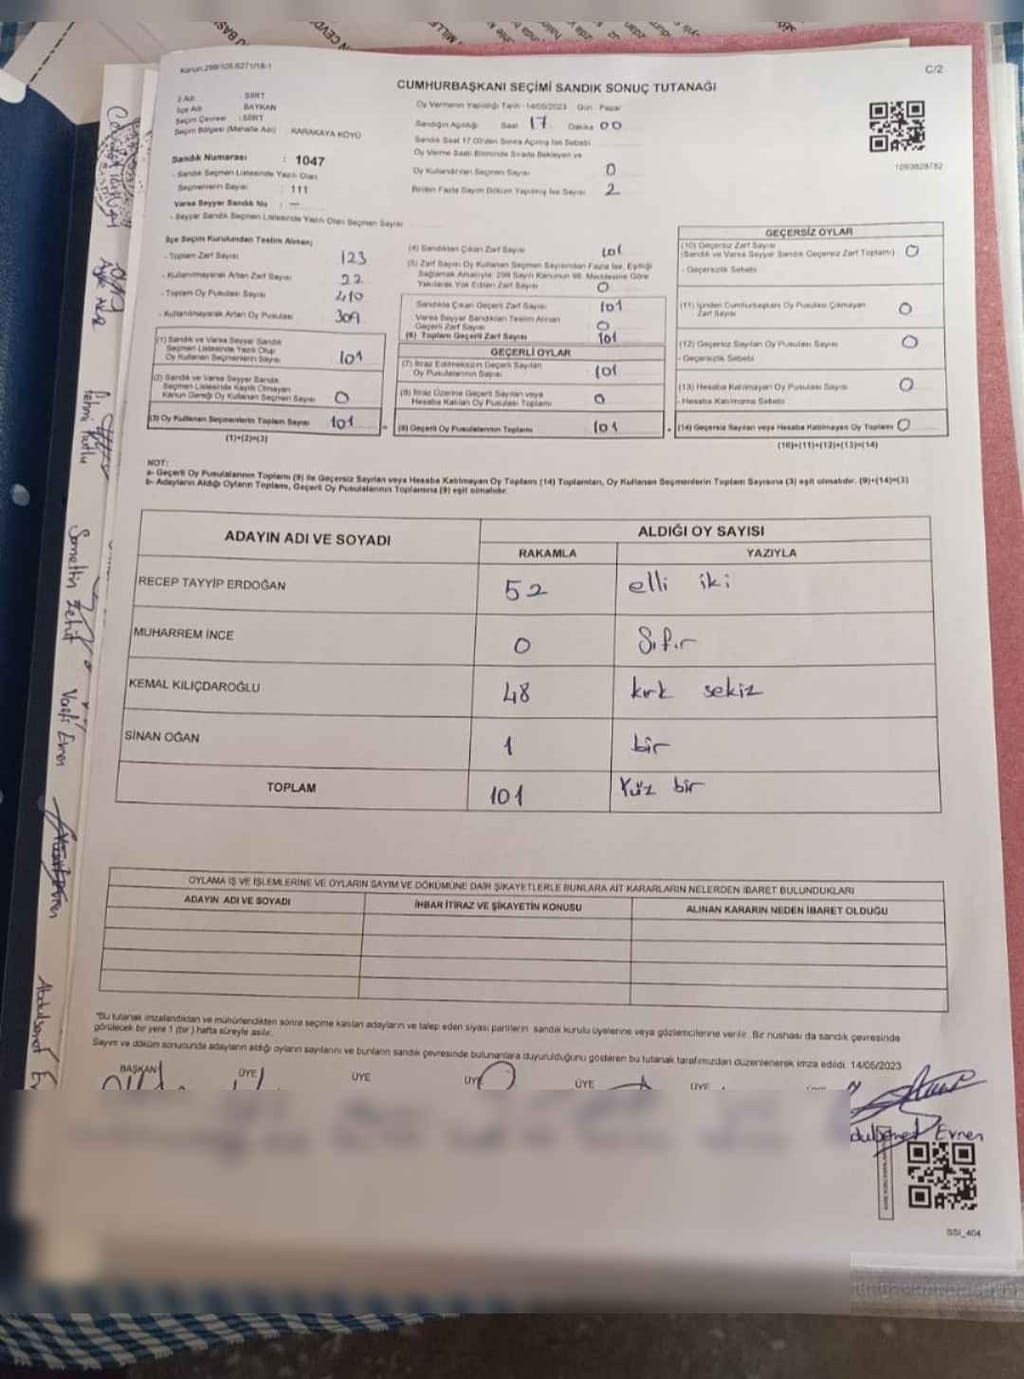 Kanun:298/105.6271/18-1
C/2
CUMHURBAŞKANI SEÇİMİ SANDIK SONUÇ TUTANAĞI
İl Adı : SİİRT
İlçe Adı BAYKAN
Seçim Çevresi : SİİRT
Seçim Bölgesi (Mahalle Adı) KARAKAYA KÖYÜ
Sandık Numarası : 1047
- Sandık Seçmen Listesinde Yazılı Olan
Seçmenlerin Sayısı : 111
Varsa Seyyar Sandık No : —
- Seyyar Sandık Seçmen Listesinde Yazılı Olan Seçmen Sayısı
Oy Vermenin Yapıldığı Tarih : 14/05/2023 Gün : Pazar
Sandığın Açıldığı Saat 17 Dakika 00
Sandık Saat 17.00'den Sonra Açılmış İse Sebebi
Oy Verme Saati Bitiminde Sırada Bekleyen ve
Oy Kullandırılan Seçmen Sayısı 0
Birden Fazla Sayım Döküm Yapılmış İse Sayısı 2
1093828782
İlçe Seçim Kurulundan Teslim Alınan;
- Toplam Zarf Sayısı 123
- Kullanılmayarak Artan Zarf Sayısı 22
- Toplam Oy Pusulası Sayısı 410
- Kullanılmayarak Artan Oy Pusulası 309
(1) Sandık ve Varsa Seyyar Sandık
Seçmen Listesinde Yazılı Olup
Oy Kullanan Seçmenlerin Sayısı 101
(2) Sandık ve Varsa Seyyar Sandık
Seçmen Listesinde Kayıtlı Olmayan
Kanun Gereği Oy Kullanan Seçmen Sayısı 0
(3) Oy Kullanan Seçmenlerin Toplam Sayısı 101
(1)+(2)=(3)
(4) Sandıktan Çıkan Zarf Sayısı 101
(5) Zarf Sayısı Oy Kullanan Seçmen Sayısından Fazla İse, Eşitliği
Sağlamak Amacıyla; 298 Sayılı Kanunun 98. Maddesine Göre
Yakılarak Yok Edilen Zarf Sayısı 0
Sandıkta Çıkan Geçerli Zarf Sayısı 101
Varsa Seyyar Sandıktan Teslim Alınan
Geçerli Zarf Sayısı 0
(6) Toplam Geçerli Zarf Sayısı 101
GEÇERLİ OYLAR
(7) İtiraz Edilmeksizin Geçerli Sayılan
Oy Pusulalarının Sayısı 101
(8) İtiraz Üzerine Geçerli Sayılan veya
Hesaba Katılan Oy Pusulası Toplamı 0
(9) Geçerli Oy Pusulalarının Toplamı 101
GEÇERSİZ OYLAR
(10) Geçersiz Zarf Sayısı
(Sandık ve Varsa Seyyar Sandık Geçersiz Zarf Toplamı) 0
- Geçersizlik Sebebi
(11) İçinden Cumhurbaşkanı Oy Pusulası Çıkmayan
Zarf Sayısı 0
(12) Geçersiz Sayılan Oy Pusulası Sayısı 0
- Geçersizlik Sebebi
(13) Hesaba Katılmayan Oy Pusulası Sayısı 0
- Hesaba Katılmama Sebebi
(14) Geçersiz Sayılan veya Hesaba Katılmayan Oy Toplamı 0
(10)+(11)+(12)+(13)=(14)
NOT:
a- Geçerli Oy Pusulalarının Toplamı (9) ile Geçersiz Sayılan veya Hesaba Katılmayan Oy Toplamı (14) Toplamları, Oy Kullanan Seçmenlerin Toplam Sayısına (3) eşit olmalıdır. (9)+(14)=(3)
b- Adayların Aldığı Oyların Toplamı, Geçerli Oy Pusulalarının Toplamına (9) eşit olmalıdır.
ADAYIN ADI VE SOYADI ALDIĞI OY SAYISI
RAKAMLA YAZIYLA
RECEP TAYYİP ERDOĞAN 52 elli iki
MUHARREM İNCE 0 Sıfır
KEMAL KILIÇDAROĞLU 48 kırk sekiz
SİNAN OĞAN 1 bir
TOPLAM 101 Yüz bir
OYLAMA İŞ VE İŞLEMLERİNE VE OYLARIN SAYIM VE DÖKÜMÜNE DAİR ŞİKAYETLERLE BUNLARA AİT KARARLARIN NELERDEN İBARET BULUNDUKLARI
ADAYIN ADI VE SOYADI İHBAR İTİRAZ VE ŞİKAYETİN KONUSU ALINAN KARARIN NEDEN İBARET OLDUĞU
"Bu tutanak imzalandıktan ve mühürlendikten sonra seçime katılan adayların ve talep eden siyasi partilerin sandık kurulu üyelerine veya gözlemcilerine verilir. Bir nushası da sandık çevresinde
görülecek bir yere 1 (bir) hafta süreyle asılır.
Sayım ve döküm sonucunda adayların aldığı oyların sayılarını ve bunların sandık çevresinde bulunanlara duyurulduğunu gösteren bu tutanak tarafımızdan düzenlenerek imza edildi. 14/05/2023
BAŞKAN ÜYE ÜYE ÜYE ÜYE ÜYE
Evren
SSİ_404